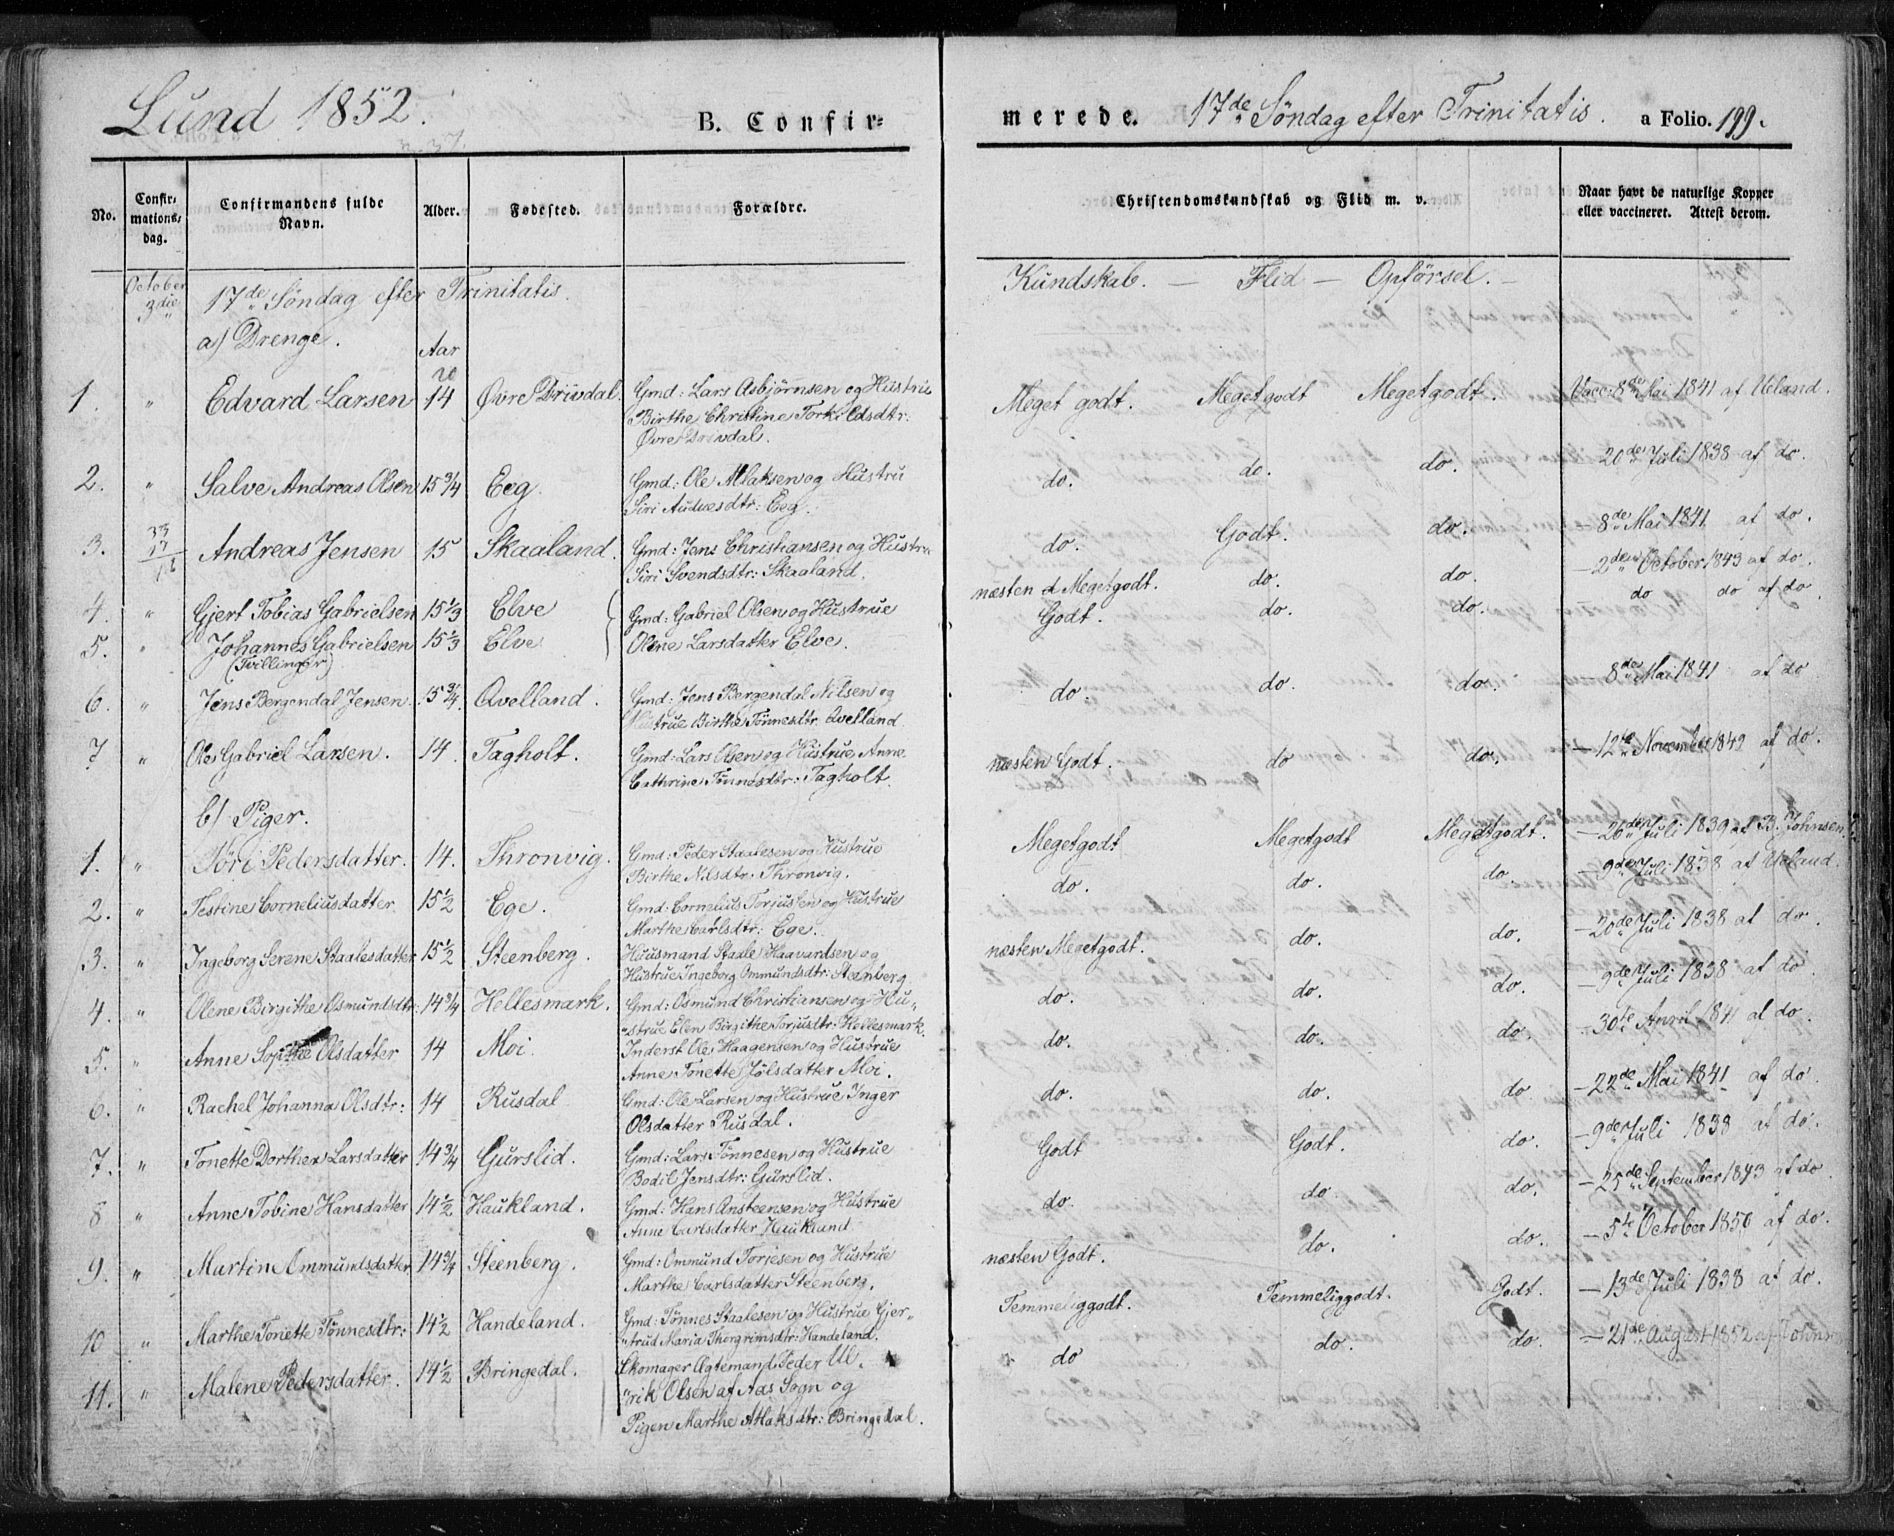 Lund 1852.
B. Confir-
merede. 17de Søndag efter Trinitatis. a Folio. 199.
No. Confir-mations-dag. Confirmandens fulde Navn. Alder. Fødested. Forældre. Christendomskundskab og Flid m. v. Naar havt de naturlige Kopper eller vaccineret. Attest derom.
October 3die 17de Søndag efter Trinitatis. Kundskab. — Flid — Opførsel. —
a) Drenge. Aar
1. " Edvard Larsen 14 Øvre Drivdal. Gmd: Lars Asbjørnsen og Hustrue Meget godt. Megetgodt Megetgodt. Vacc: 8de Mai 1841 af Ueland.
Birthe Christine Torkildsdtr:
Øvre Drivdal.
2. " Salve Andreas Olsen 15 3/4 Eeg. Gmd: Ole Atlaksen og Hustru do. do. do. — 20de Juli 1838 af do.
Siri Eeg.
3. Andreas Jensen 15 Skaaland. Gmd: Jens Christiansen og Hustru do. Godt. do. — 8de Mai 1841 af do.
Siri Svendsdtr: Skaaland.
4. " Gjert Tobias Gabrielsen 15 1/3 Elve Gmd: Gabriel Olsen og Hustrue næsten Megetgodt. do. do. — 2den October 1843 af do.
5. " Johannes Gabrielsen 15 1/3 Elve Olene Larsdatter Elve. Godt. do. do. do do af do
(Tvillinger)
6. " Jens Bergendal Jensen 15 3/4 Qvelland. Gmd: Jens Bergendal Nilsen og do. do. do. — 8de Mai 1841 af do
Hustrue Birthe Tønnesdtr: Qvelland
7 " Ole Gabriel Larsen. 14. Tagholt. Gmd: Lars Olsen og Hustrue Anne næsten Godt. do do. — 12te November 1842 af do.
Cathrine Tønnesdtr: Tagholt.
b) Piger.
1. " Siri Pedersdatter. 14. Thronvig. Gmd: Peder Staalesen og Hustrue Megetgodt Megetgodt Megetgodt. — 26de Juli 1839 af B. Johnsen.
Birthe Nilsdtr: Thronvig.
2. " Testine Corneliusdatter. 15 1/2 Ege. Gmd: Cornelius Torjusen og Hustrue do. do. do. — 9de Juli 1838 af Ueland.
Marthe Carlsdtr: Ege.
3. " Ingeborg Serene Staalesdatter 15 1/2 Steenberg. Huusmand Staale Haavardsen og næsten Megetgodt. do. do. — 20de Juli 1838 af do.
Hustrue Ingeborg Ommundsdtr: Steenberg.
4. " Olene Birgithe Osmundsdtr: 14 3/4 Hellesmark. Gmd: Osmund Christiansen og Hu- do. do. do. — 9de Juli 1838 af do
strue Elen Birgithe Torjusdtr: Hellesmark.
5. " Anne Sophie Olsdatter 14 Moi. Inderst Ole Haagensen og Hustrue do. do. do. — 30te April 1841 af do.
Anne Tonette Jølsdatter Moi.
6. " Rachel Johanna Olsdtr: 14 Rusdal Gmd: Ole Larsen og Hustrue Inger do. do. do — 22de Mai 1841 af do.
Olsdatter Rusdal.
7. " Tonette Dorthea Larsdatter 14 3/4 Gurslid. Gmd: Lars Tønnesen og Hustrue Godt Godt. do. — 9de Juli 1838 af do.
Bodil Jensdtr: Gurslid.
8 " Anne Tobine Hansdatter 14 1/2. Haukland. Gmd: Hans Ansteensen og Hustrue do. do. do. — 25de September 1843 af do
Anne Carlsdatter Haukland.
9. " Martine Ommundsdatter 14 3/4 Steenberg. Gmd: Ommund Torjesen og Hustrue næsten Godt. do. do. — 5te October 1850 af do.
Marthe Carlsdatter Steenberg.
10 " Marthe Tonette Tønnesdtr: 14 1/2 Handeland. Gmd: Tønnes Staalesen og Hustrue Gjer- Temmeliggodt. Temmeliggodt. Godt. — 13de Juli 1838 af do.
trud Maria Thorgrimsdtr: Handeland.
11. " Malene Pedersdatter. 14 1/2 Bringedal. Skomager Ægtemand Peder Ul- do do. do. — 21de August 1852 af
rik Olsen af Aas Sogn og
Pigen Marthe Atlaksdtr: Bringedal.